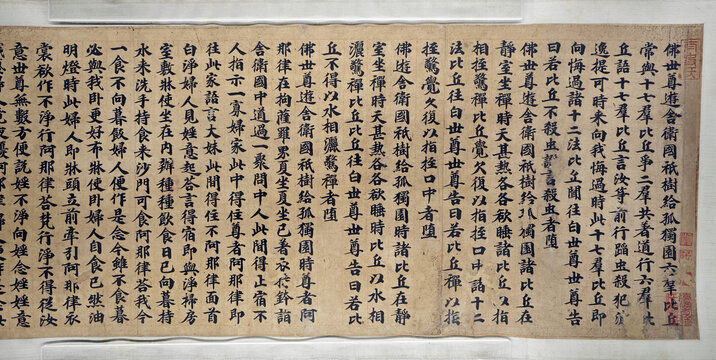 佛世尊遊舍衛國祇樹給孤獨園六羣比丘
常與十七羣比丘爭二羣共善道行六羣比
丘語十七羣比丘言汝等前行蹈虫殺犯
逸提可時來向我悔過時此十七羣比丘即
向悔過諸十二法比丘聞往白世尊世尊告
曰若比丘不殺虫言殺虫者墮
佛世尊遊舍衛國祇樹給孤獨園諸比丘在
靜室坐禪時天甚熱各各欲睡諸比丘以指
相挃驚禪比丘覺久復以指挃口中諸十二
法比丘往白世尊世尊告曰若比丘禪以指
挃驚覺久復以指挃口中者墮
佛遊舍衛國祇樹給孤獨園時諸比丘在靜
室坐禪時天甚熱各各欲睡時比丘以水相
灑驚禪比丘比丘往白世尊世尊告曰若比
丘不得以水相灑驚禪者墮
佛世尊遊舍衛國祇樹給孤獨園時尊者阿
那律在拘薩羅界夏坐夏坐已著衣持鉢詣
舍衛國中道過一聚問中人此間得止宿不
人指示一寡婦家此中得住尊者阿那律即
往此家語言大妹此間得住不阿那律面首
白淨婦人見婬意起答言得宿即與淨掃房
室敷牀使坐在內辦種種飲食日已向暮持
水来洗手持食来沙門可食阿那律荅我今
一食不向暮飲婦人便作是念今雖不食暮
必與我卧更好布牀使卧婦人自食已然油
明燈時此婦人即牀頭立前牽引阿那律衣
裳欲作不淨行阿那律荅梵行淨不得從汝
意世尊無數方便說婬不淨向婬念婬婬意